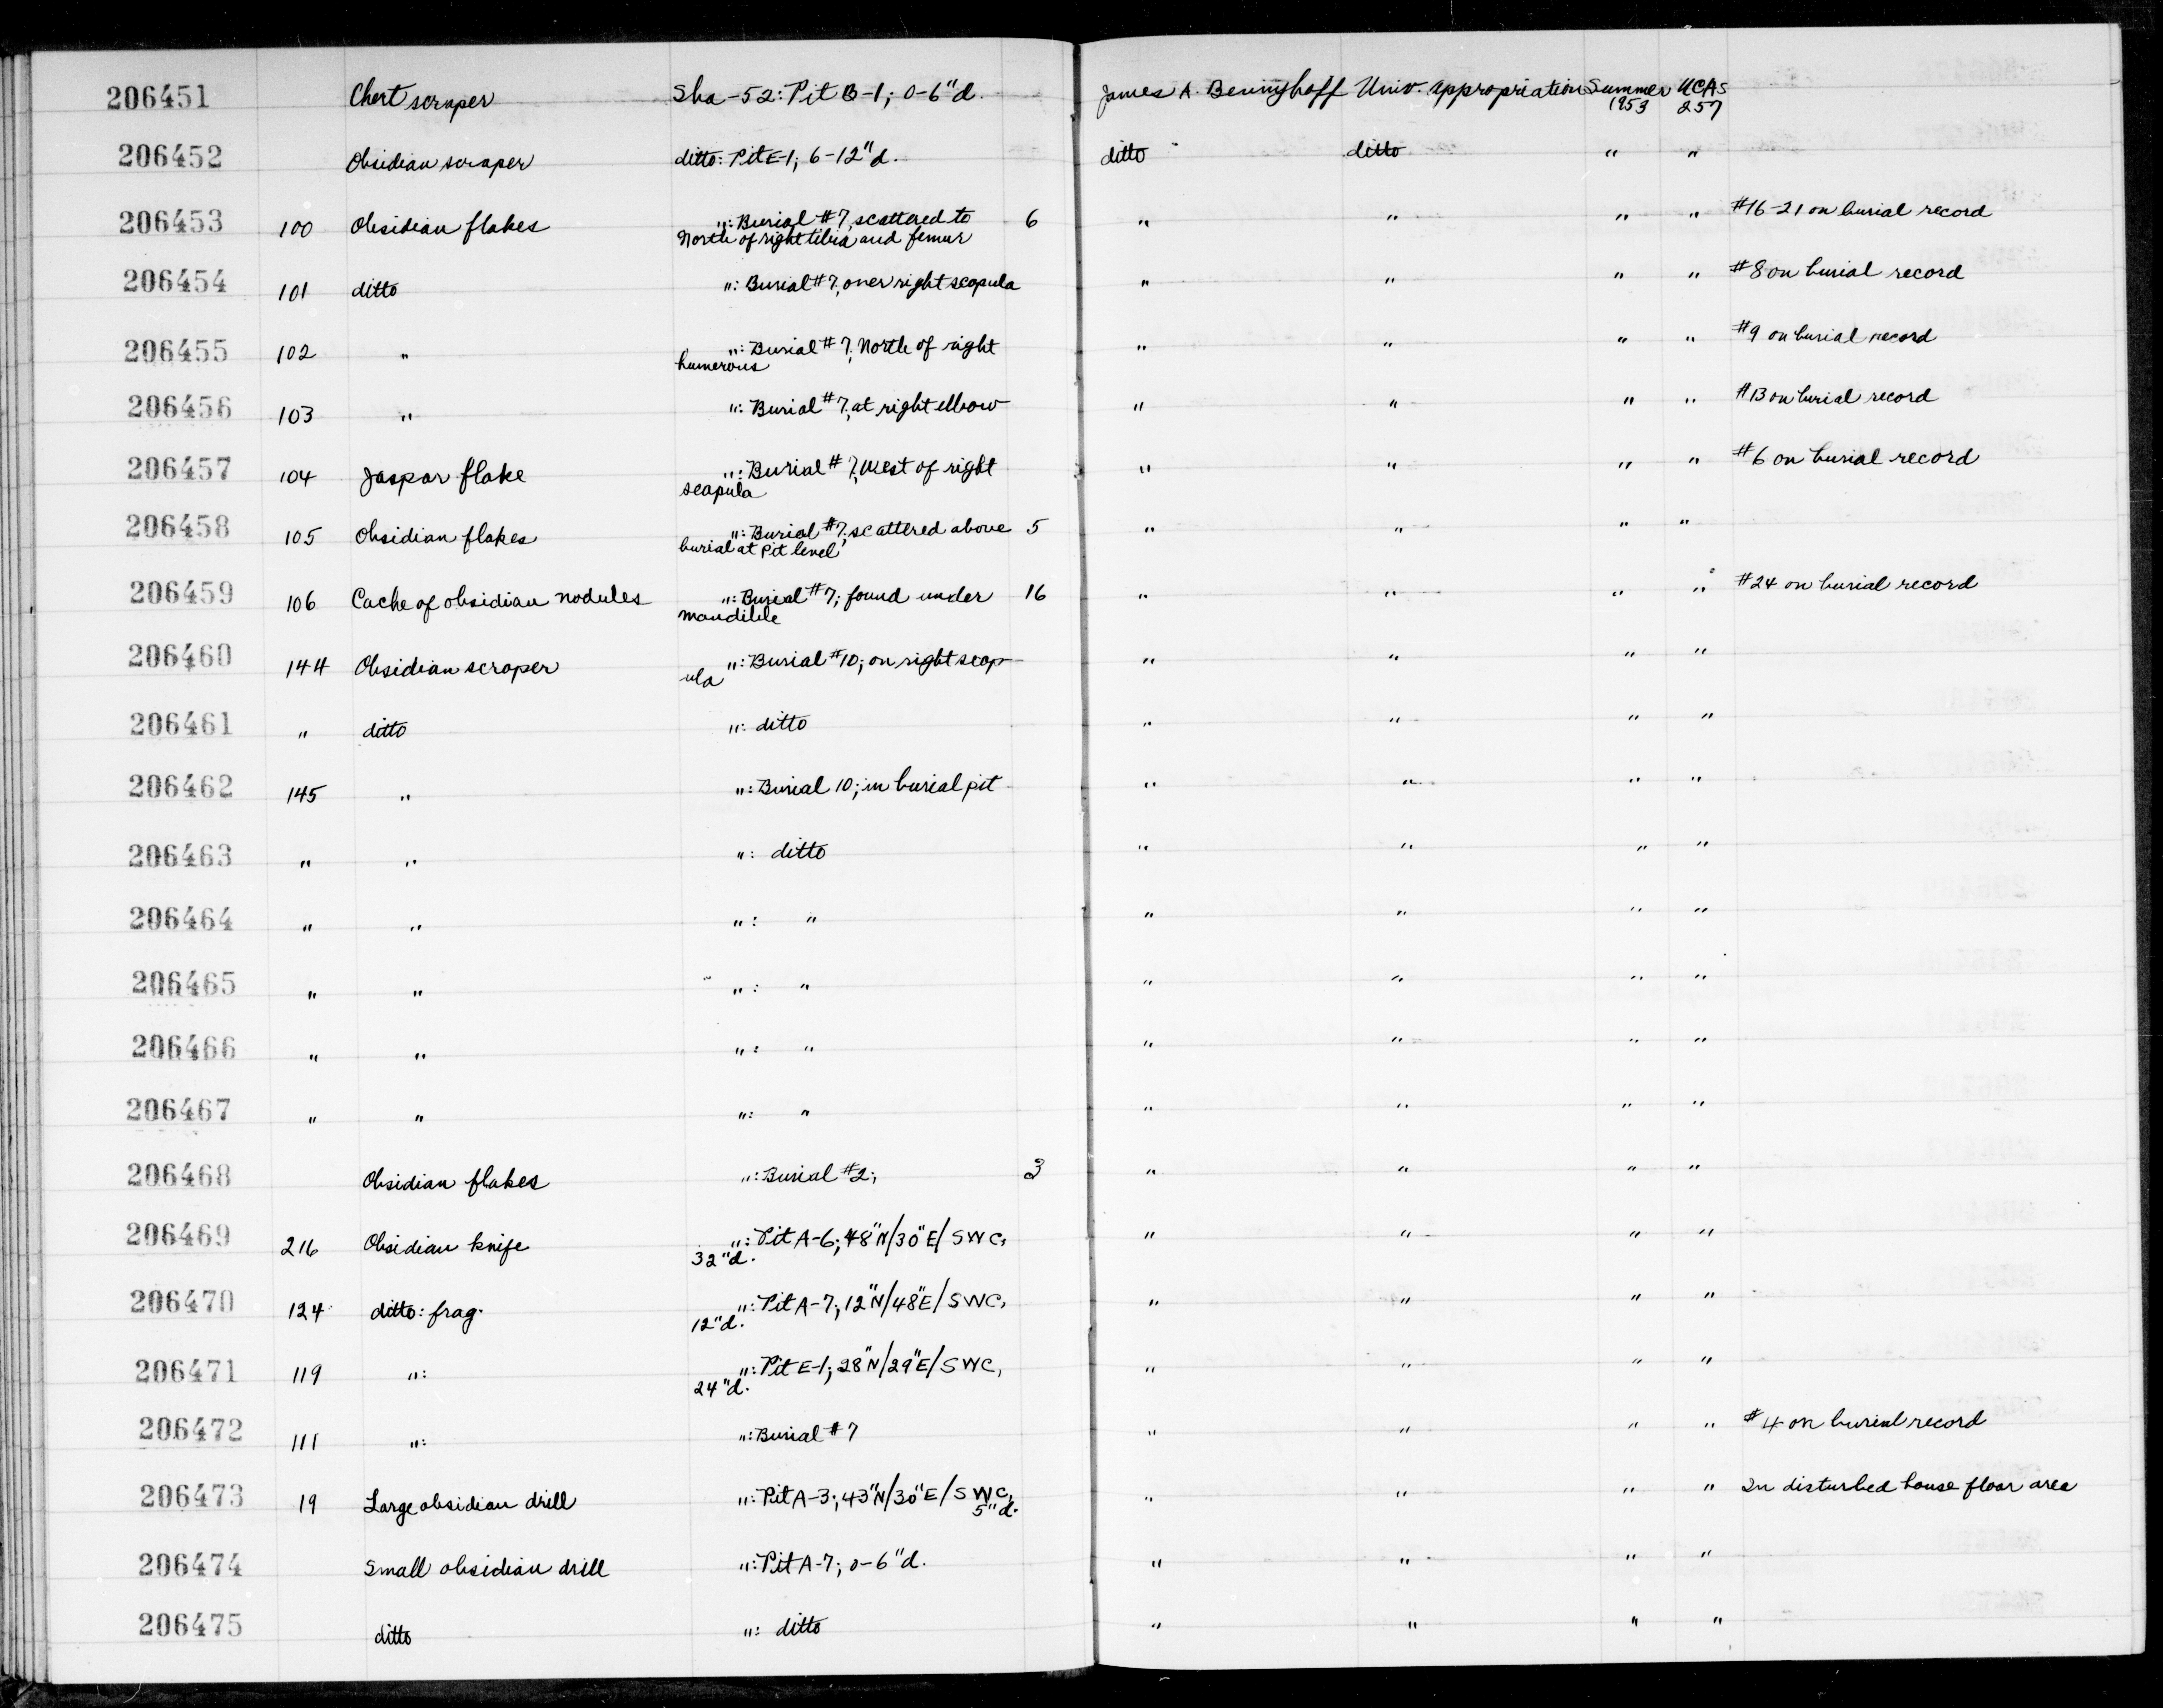 206451 Chert scraper Sha-52: Pit B-1; 0-6"d. James A. Beninghoff Univ. Appropriation Summer 1953 UCAS 257
206452 Obsidian scraper ditto: Pit E-1; 6-12"d. ditto ditto " "
206453 100 Obsidian flakes ": Burial #7, scattered to 6 " " " " #16-21 on burial record
North of right tibia and femur
206454 101 ditto ": Burial #7, over right scapula " " " " #8 on burial record
206455 102 " ": Burial #7; North of right " " " " #9 on burial record
humerous
206456 103 " ": Burial #7; at right elbow " " " " #13 on burial record
206457 104 Jaspar flake ": Burial #7; West of right " " " " #6 on burial record
scapula
206458 105 Obsidian flakes ": Burial #7; scattered above 5 " " " "
burial at Pit level
206459 106 Cache of obsidian nodules ": Burial #7; found under 16 " " " " #24 on burial record
mandible
206460 144 Obsidian scraper ": Burial #10; on right scap- " " " "
ula
206461 " ditto ": ditto " " " "
206462 145 " ": Burial 10; in burial pit " " " "
206463 " " ": ditto " " " "
206464 " " ": " " " " "
206465 " " ": " " " " "
206466 " " ": " " " " "
206467 " " ": " " " " "
206468 Obsidian flakes ": Burial #2; 3 " " " "
206469 216 Obsidian knife ": Pit A-6; 48"N/30"E/SWC, " " " "
32"d.
206470 124 ditto: frag. ": Pit A-7; 12"N/48"E/SWC, " " " "
12"d.
206471 119 ": ": Pit E-1; 28"N/29"E/SWC, " " " "
24"d.
206472 111 ": ": Burial #7 " " " " #4 on burial record
206473 19 Large obsidian drill ": Pit A-3; 43"N/30"E/SWC, " " " " In disturbed house floor area
5"d.
206474 Small obsidian drill ": Pit A-7; 0-6"d. " " " "
206475 ditto ": ditto " " " "